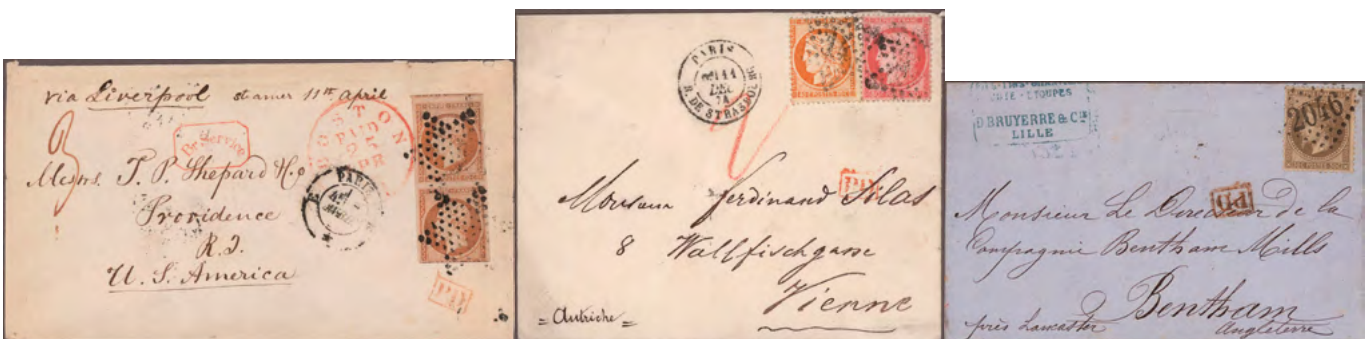 via Liverpool steamer 11th April
3
Br. Service
BOSTON
PAID
25
APR
Messrs. T. P. Shepard & Co
PARIS
Providence
R.I.
U. S. America
PD
PARIS
11
DEC
74
R. DE STRASBOURG
PD
Monsieur Ferdinand
8 Wallfischgasse
Vienne
= Autriche =
D BRUYERRE & CIE
LILLE
2046
PD
Monsieur Le Directeur de la
Compagnie Bentham Mills
Bentham
près Lancaster
Angleterre